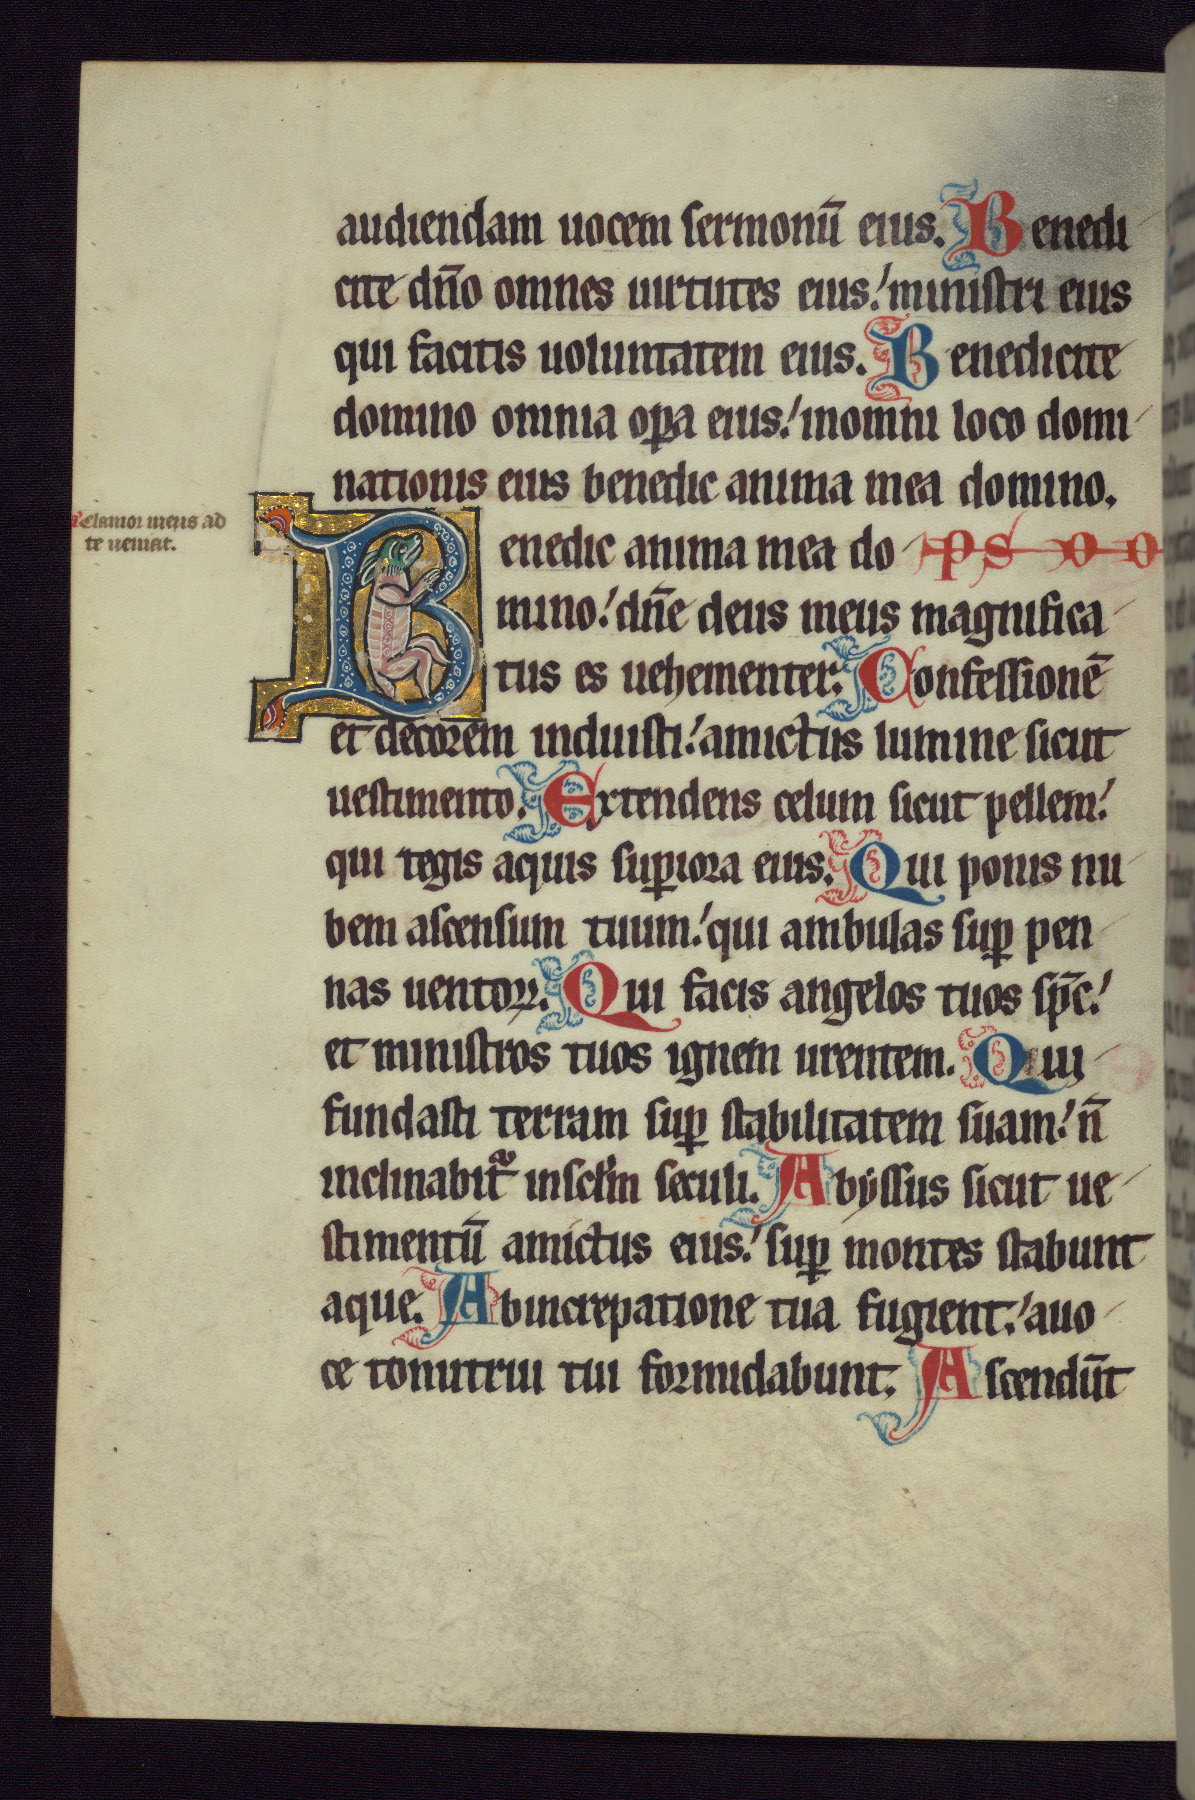 audiendam uocem sermonū eius. Benedi
cite dn̄o omnes uirtutes eius: ministri eius
qui facitis uoluntatem eius. Benedicite
domino omnia oꝑa eius: inomni loco domi
nationis eius benedic anima mea domino.
clamor meus ad
te ueniat.
Benedic anima mea do ps
mino: dn̄e deus meus magnifica
tus es uehementer. Confessionē
et decorem induisti: amictus lumine sicut
uestimento. Extendens celum sicut pellem:
qui tegis aquis suꝑiora eius. Qui ponis nu
bem ascensum tuum: qui ambulas suꝑ pen
nas uentoꝝ. Qui facis angelos tuos sp̄c:
et ministros tuos ignem urentem. Qui
fundasti terram suꝑ stabilitatem suam: n̄
inclinabit᷑ insclm̄ seculi. Abyssus sicut ue
stimentū amictus eius: suꝑ montes stabunt
aque. Abincrepatione tua fugient: auo
ce tonitrui tui formidabunt. Ascendūt